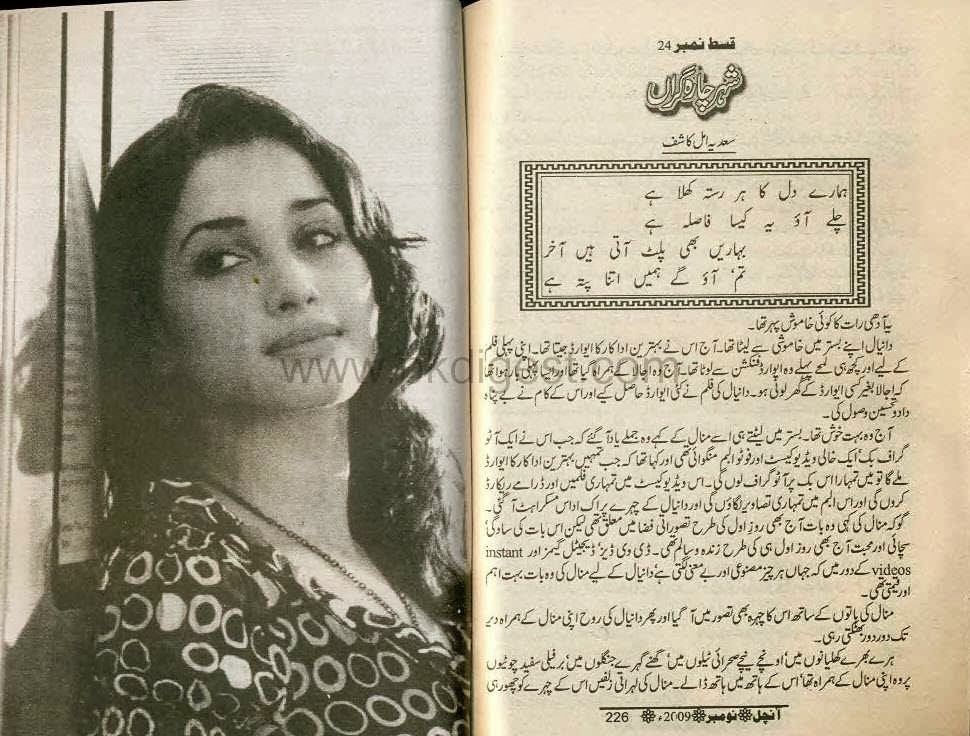 قسط نمبر 24
شہر چارہ گراں
سعدیہ امل کاشف
ہمارے دل کا ہر رستہ کھلا ہے
چلے آؤ یہ کیسا فاصلہ ہے
بہاریں بھی پلٹ آتی ہیں آخر
تم' آؤ گے ہمیں اتنا پتہ ہے
یہ آدھی رات کا کوئی خاموش پہر تھا۔
دانیال اپنے بستر میں خاموشی سے لیٹا تھا۔ آج اس نے بہترین اداکار کا ایوارڈ جیتا تھا۔ اپنی پہلی فلم
کے لیے اور کچھ ہی لمحے پہلے وہ ایوارڈ فنکشن سے لوٹا تھا۔ آج وہ اجالا کے ہمراہ گیا تھا اور ایسا پہلی بار ہوا تھا
کہ اجالا بغیر کسی ایوارڈ کے گھر لوٹی ہو۔ دانیال کی فلم نے کئی ایوارڈ حاصل کیے اور اس کے کام نے بے پناہ
داد و تحسین وصول کی۔
آج وہ بہت خوش تھا۔ بستر میں لیٹتے ہی اسے منال کے کہے وہ جملے یاد آ گئے کہ جب اس نے ایک آٹو
گراف بک' ایک خالی ویڈیو کیسٹ اور فوٹو البم منگوائی تھی اور کہا تھا کہ جب تمہیں بہترین اداکار کا ایوارڈ
ملے گا تو میں تمہارا اس بک پر آٹو گراف لوں گی۔ اس ویڈیو کیسٹ میں تمہاری فلمیں اور ڈرامے ریکارڈ
کروں گی اور اس البم میں تمہاری تصاویر لگاؤں گی اور دانیال کے چہرے پر اک اداس مسکراہٹ آ گئی۔
گو کہ منال کی کہی وہ بات آج بھی روز اول کی طرح تصوراتی فضا میں معلق تھی لیکن اس بات کی سادگی'
سچائی اور محبت آج بھی روز اول ہی کی طرح زندہ و سالم تھی۔ ڈی وی ڈیز' ڈیجیٹل کیمرز اور instant
videos کے دور میں کہ جہاں ہر چیز مصنوعی اور بے معنی لگتی ہے دانیال کے لیے منال کی وہ بات بہت اہم
اور قیمتی تھی۔
منال کی باتوں کے ساتھ اس کا چہرہ بھی تصور میں آ گیا اور پھر دانیال کی روح اپنی منال کے ہمراہ دیر
تک دور دور بھٹکتی رہی۔
ہرے بھرے کھلیانوں میں' اونچے نیچے صحرائی ٹیلوں میں' گھنے گہرے جنگلوں میں' برفیلی سفید چوٹیوں
پر وہ اپنی منال کے ہمراہ تھا' اس کے ہاتھ میں ہاتھ ڈالے۔ منال کی لہراتی زلفیں اس کے چہرے کو چھو رہی
آنچل نومبر ۲۰۰۹ء 226